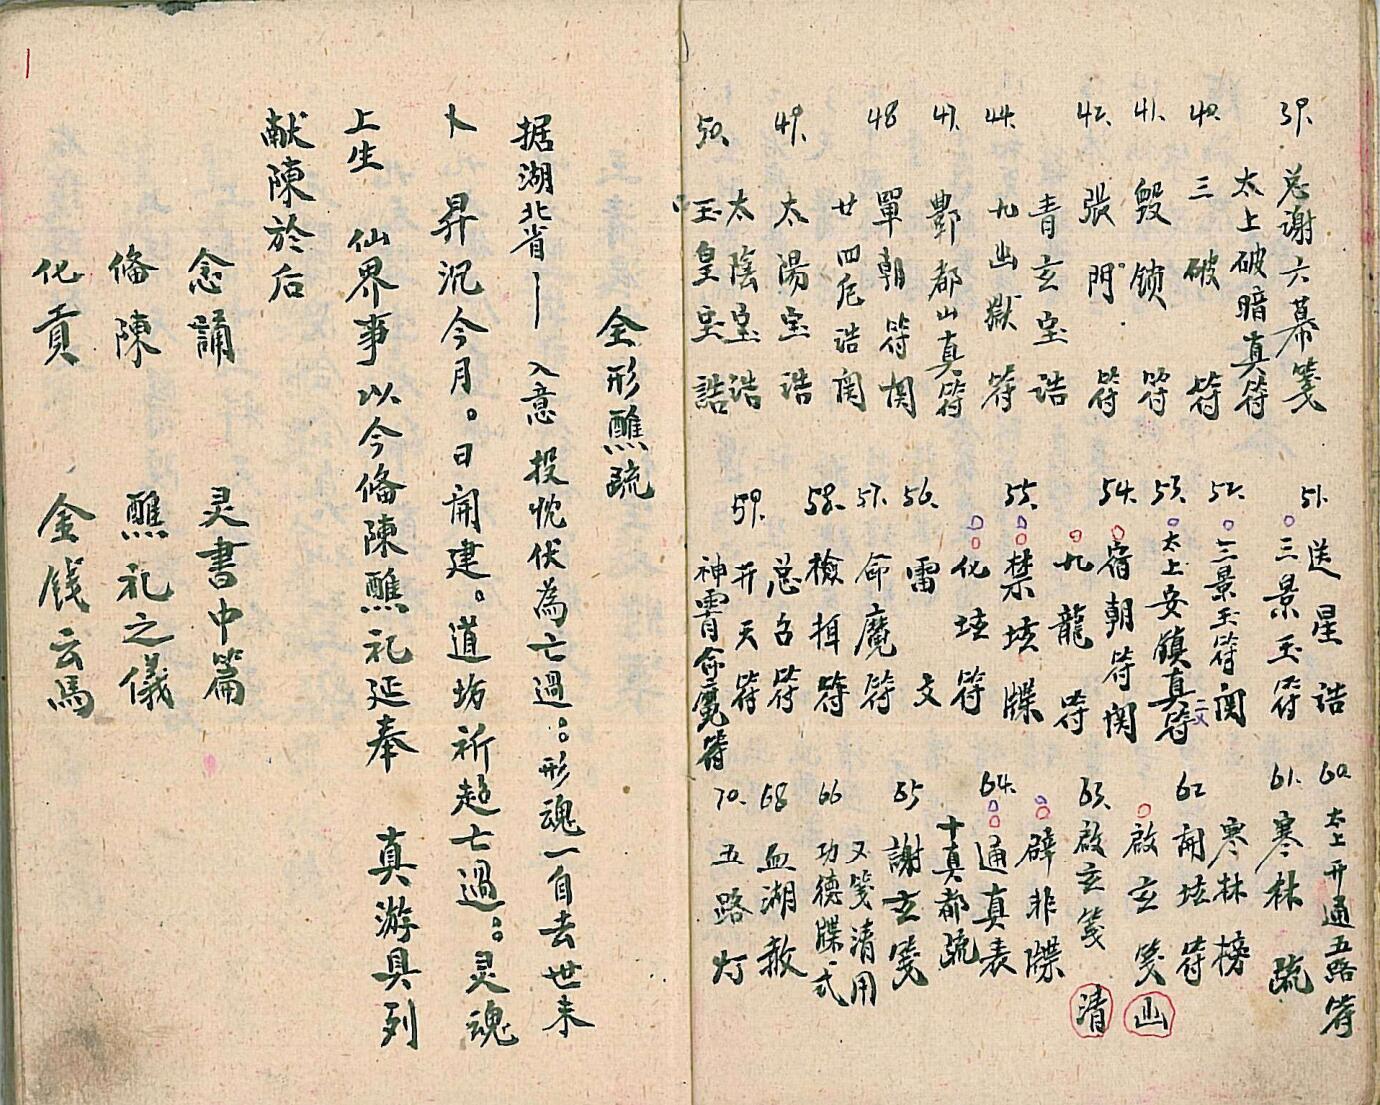 39. 总谢六幕笺
太上破暗真符
40. 三破符
41. 毁锁符
42. 張門符
青玄宝诰
44. 九幽獄符
47. 酆都山真符
48 單朝符関
廿四卮诰関
49. 太陽宝诰
太陰宝诰
50. 玉皇宝誥
51. 送星诰
三景玉符
52. 三景玉符関
53. 太上安鎮真符二文
54. 宿朝符関
九龍符
55. 禁坛牒
化坛符
56. 雷文
57. 命魔符
58. 檢押符
总召符
59. 开天符
神霄命魔符
60. 太上开通五路符
61. 寒林疏
寒林榜
62 開坛符
啟玄笺 幽
63. 啟玄笺 清
辟非牒
64. 通真表
十真都疏
65 謝玄笺
又笺清用
66 功德牒式
68 血湖赦
70. 五路灯
1
全形醮疏
据湖北省— 入意 投忱伏為亡過。。形魂一自去世未
卜 昇沉今月。日開建。道坊祈超亡過。。灵魂
上生 仙界事以今俻陳醮礼延奉 真游具列
献陳於后
念誦 灵書中篇
俻陳 醮礼之儀
化貢 金銭云馬